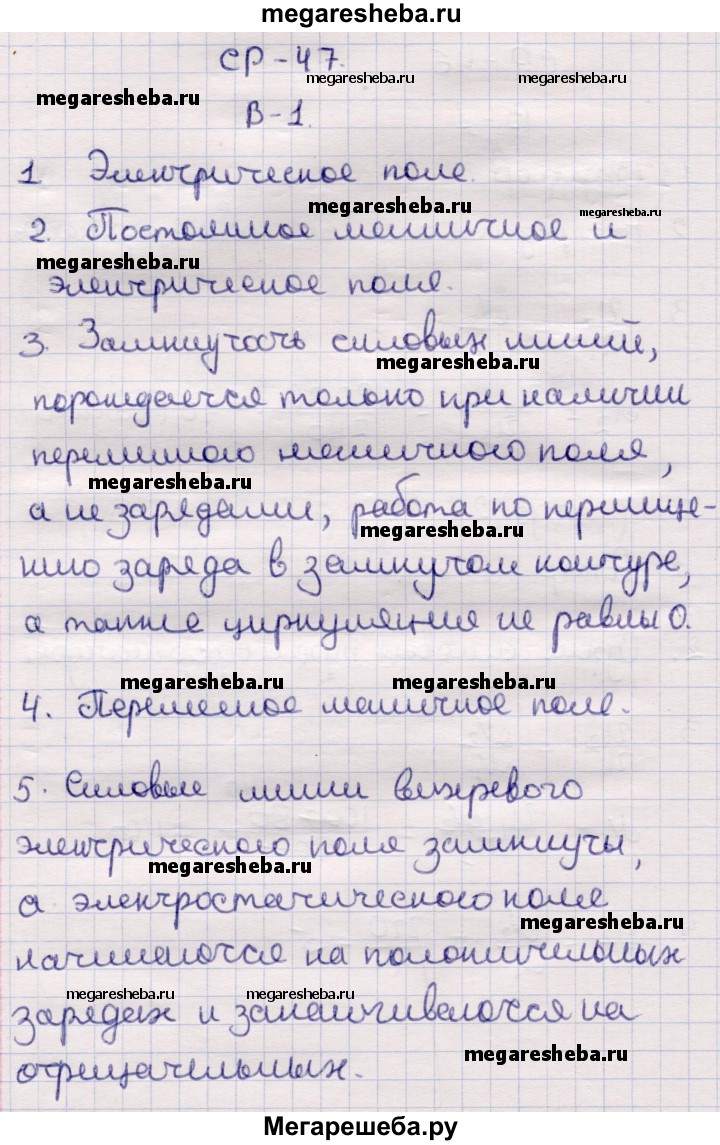 megaresheba.ru
СР-47.
megaresheba.ru megaresheba.ru
megaresheba.ru
В-1.
1 Электрическое поле.
megaresheba.ru megaresheba.ru
2. Постоянное магнитное и
megaresheba.ru
электрическое поля.
3. Замкнутость силовых линий,
megaresheba.ru
порождается только при наличии
переменного магнитного поля,
megaresheba.ru
а не зарядами, работа по перемеще-
megaresheba.ru
нию заряда в замкнутом контуре,
а также циркуляция не равны 0.
megaresheba.ru megaresheba.ru
4. Переменное магнитное поле.
5. Силовые линии вихревого
электрического поля замкнуты,
megaresheba.ru
а электростатического поля
megaresheba.ru
начинаются на положительных
megaresheba.ru megaresheba.ru
зарядах и заканчиваются на
megaresheba.ru
отрицательных.
Мегарешеба.ру